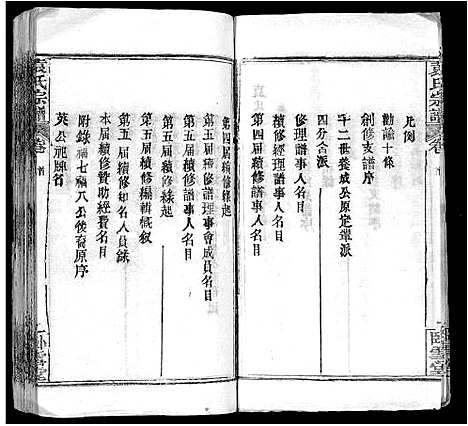 袁氏宗譜
卷
首
臥雲堂
凡例
勸諭十條
創修支譜序
十二世養成公原定輩派
四分合派
續修經理譜事人名目
第四屆續修譜事人名目
第四屆續修緣起
第五屆續修譜理事會成員名目
第五屆續修譜事人名目
第五屆續修緣起
第五屆續修編輯概叙
第五屆續修印名人員錄
本屆續修贊助經費名目
附錄福七福八公後裔原序
英公祀牌名
袁氏宗譜
卷
首
臥雲堂